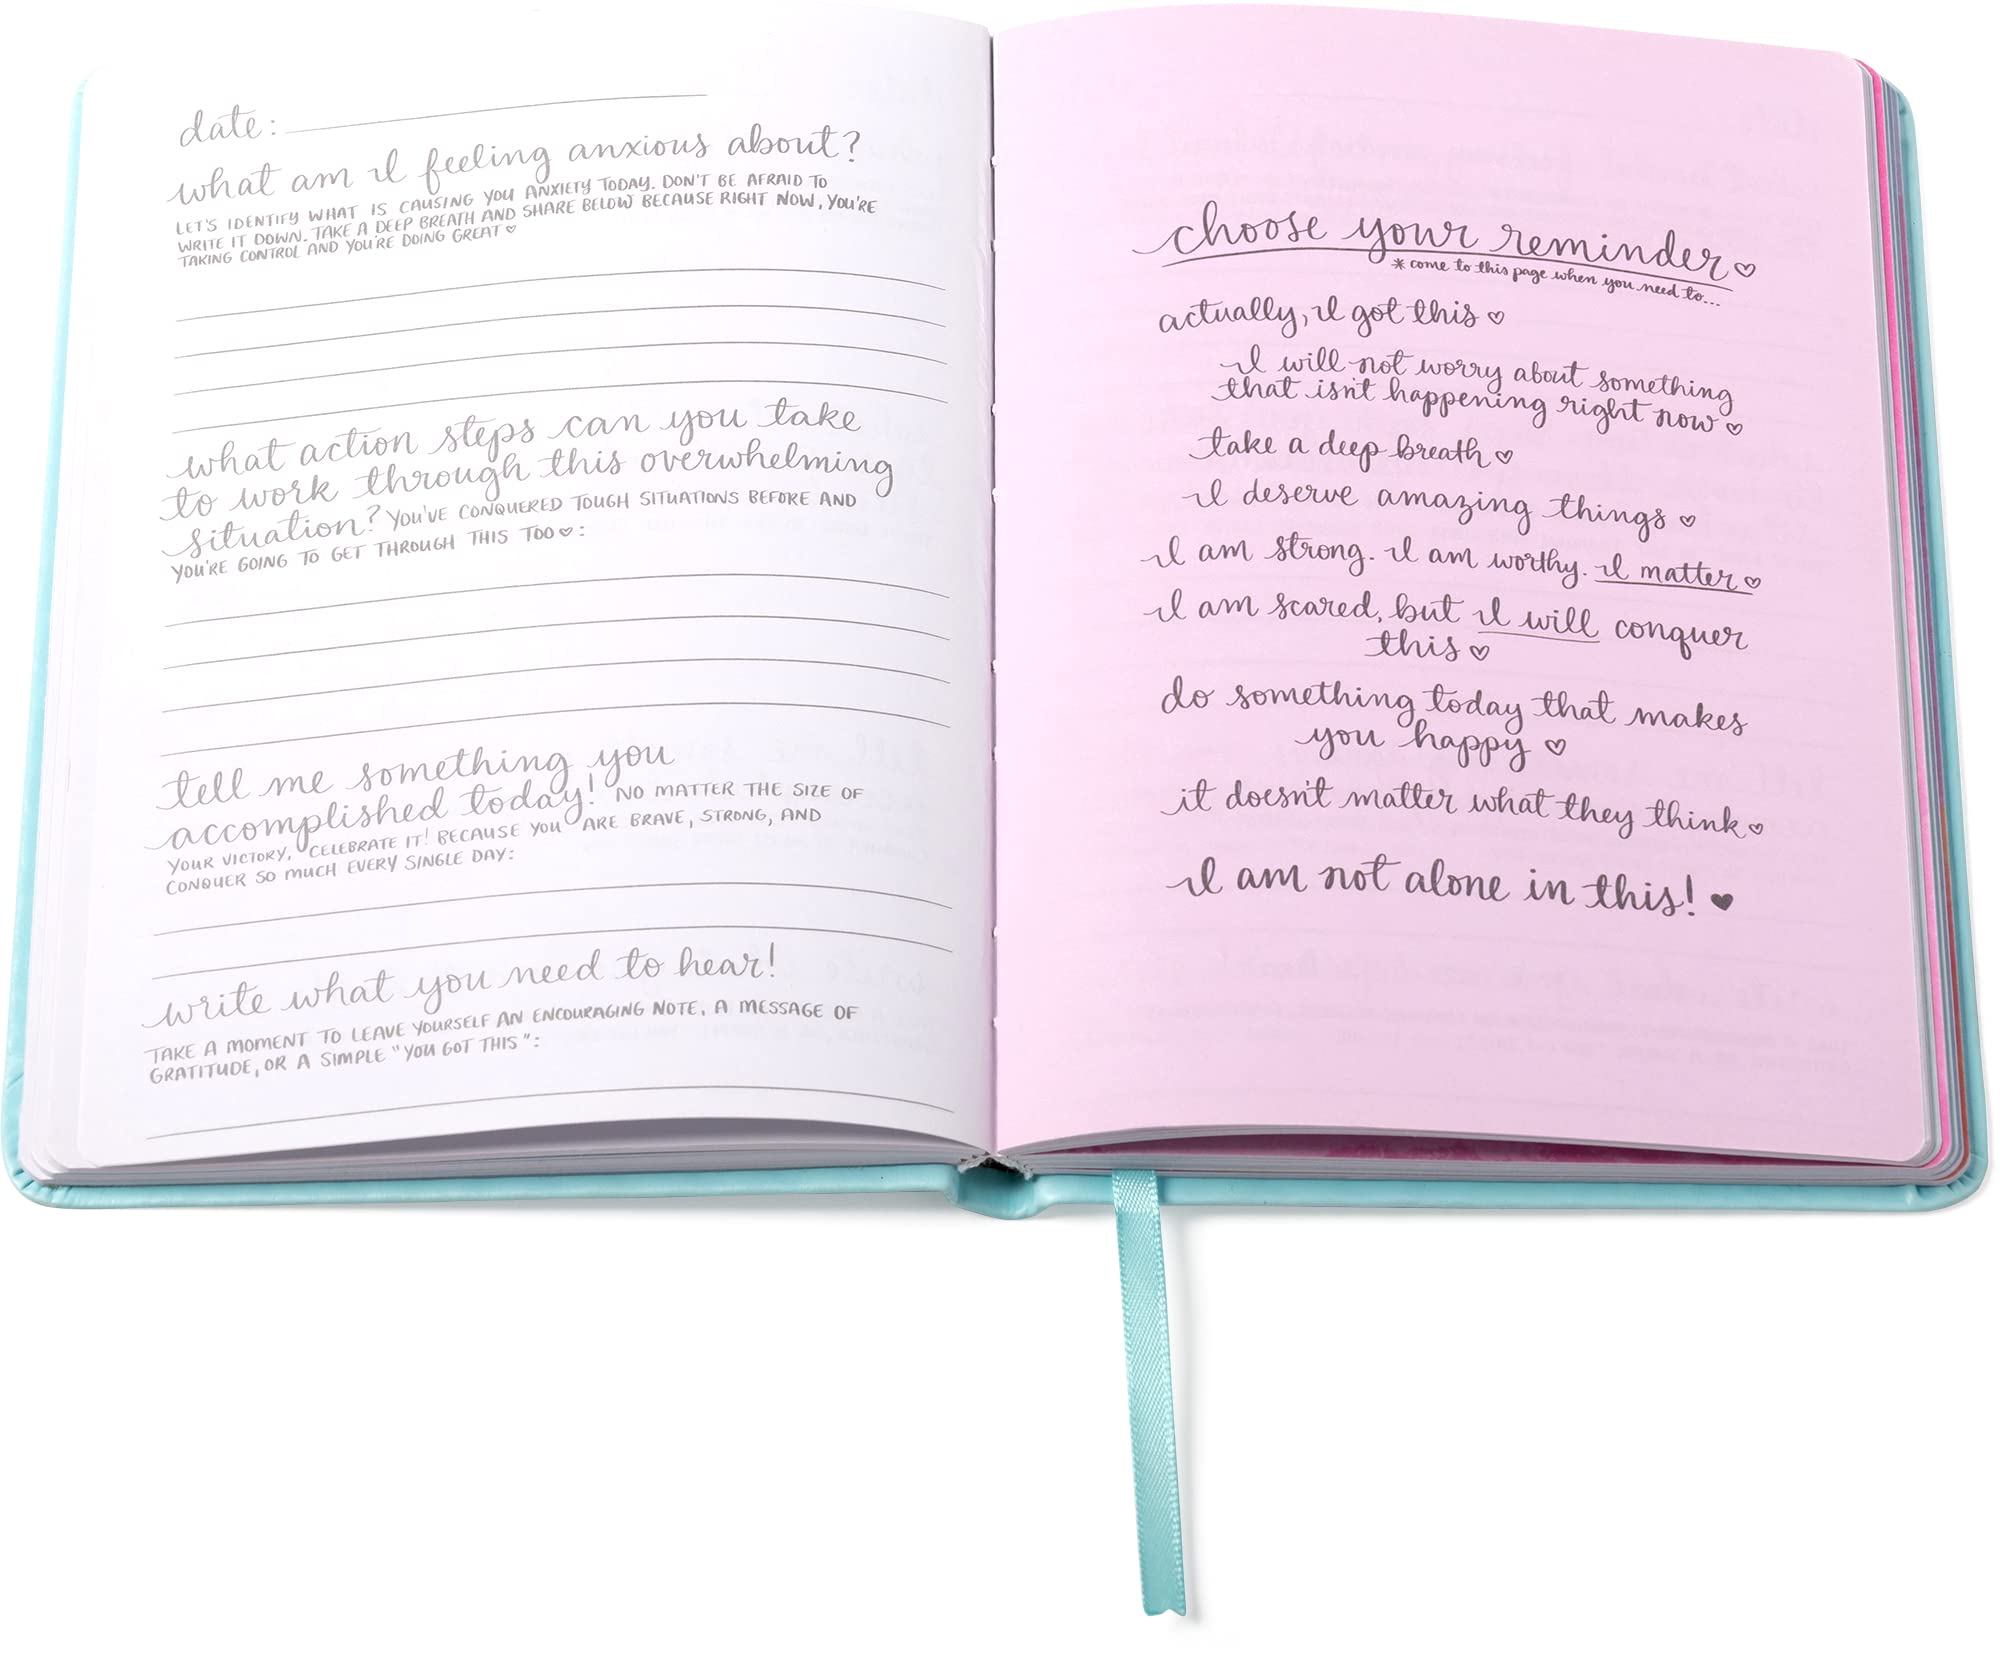 date:
what am I feeling anxious about?
LET'S IDENTIFY WHAT IS CAUSING YOU ANXIETY TODAY. DON'T BE AFRAID TO
WRITE IT DOWN. TAKE A DEEP BREATH AND SHARE BELOW BECAUSE RIGHT NOW, YOU'RE
TAKING CONTROL AND YOU'RE DOING GREAT ♡
what action steps can you take
to work through this overwhelming
situation? YOU'VE CONQUERED TOUGH SITUATIONS BEFORE AND
YOU'RE GOING TO GET THROUGH THIS TOO ♡:
tell me something you
accomplished today! NO MATTER THE SIZE OF
YOUR VICTORY, CELEBRATE IT! BECAUSE YOU ARE BRAVE, STRONG, AND
CONQUER SO MUCH EVERY SINGLE DAY:
write what you need to hear!
TAKE A MOMENT TO LEAVE YOURSELF AN ENCOURAGING NOTE, A MESSAGE OF
GRATITUDE, OR A SIMPLE "YOU GOT THIS":
choose your reminder ♡
* come to this page when you need to...
actually, I got this ♡
I will not worry about something
that isn't happening right now ♡
take a deep breath ♡
I deserve amazing things ♡
I am strong. I am worthy. I matter ♡
I am scared, but I will conquer
this ♡
do something today that makes
you happy ♡
it doesn't matter what they think ♡
I am not alone in this! ♥